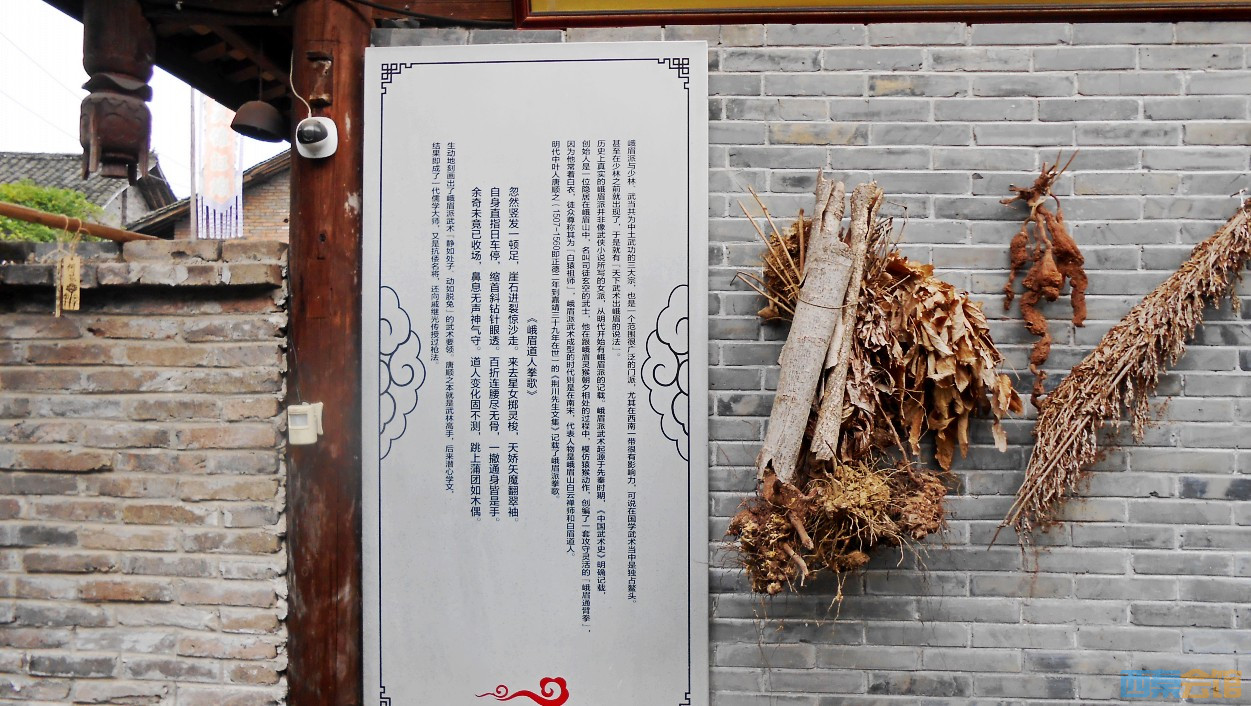 峨眉派与少林、武当共为中土武功的三大宗，也是一个范围很广泛的门派，尤其在西南一带很有影响力，可说在国学武术当中是独占鳌头。
甚至在少林之前就出现了，于是就有「天下武术出峨眉的说法」。
历史上真实的峨眉派并非像武侠小说所写的女派，从明代开始有峨眉派的记载。峨眉派武术起源于先秦时期，《中国武术史》明确记载，
创始人是一位隐居在峨眉山中，名叫司徒玄空的武士，他在跟峨眉灵猴朝夕相处的过程中，模仿猿猴动作，创编了一套攻守灵活的「峨眉通臂拳」，
因为他常着白衣，徒众尊称其为「白猿祖师」，峨眉派武术成型的时代则是在南宋，代表人物是峨眉山白云禅师和白眉道人。
明代中叶人唐顺之(1507-1560即正德二年到嘉靖三十九年在世)的《荆川先生文集》记载了峨眉派拳歌。
《峨眉道人拳歌》
忽然竖发一顿足，崖石迸裂惊沙走。来去星女掷灵梭，夭矫矢魔翻翠袖。
自身直指日车停，缩首斜钻针眼透。百折连腰尽无骨，一撒通身皆是手。
余奇未竟已收场，鼻息无声神气守。道人变化固不测，跳上蒲团如木偶。
生动地刻画出了峨眉派武术「静如处子，动如脱兔」的武术要领。唐顺之本就是武林高手，后来潜心学文，
结果即成了一代儒学大师，又是抗倭名将，还向戚继光传授过枪法。